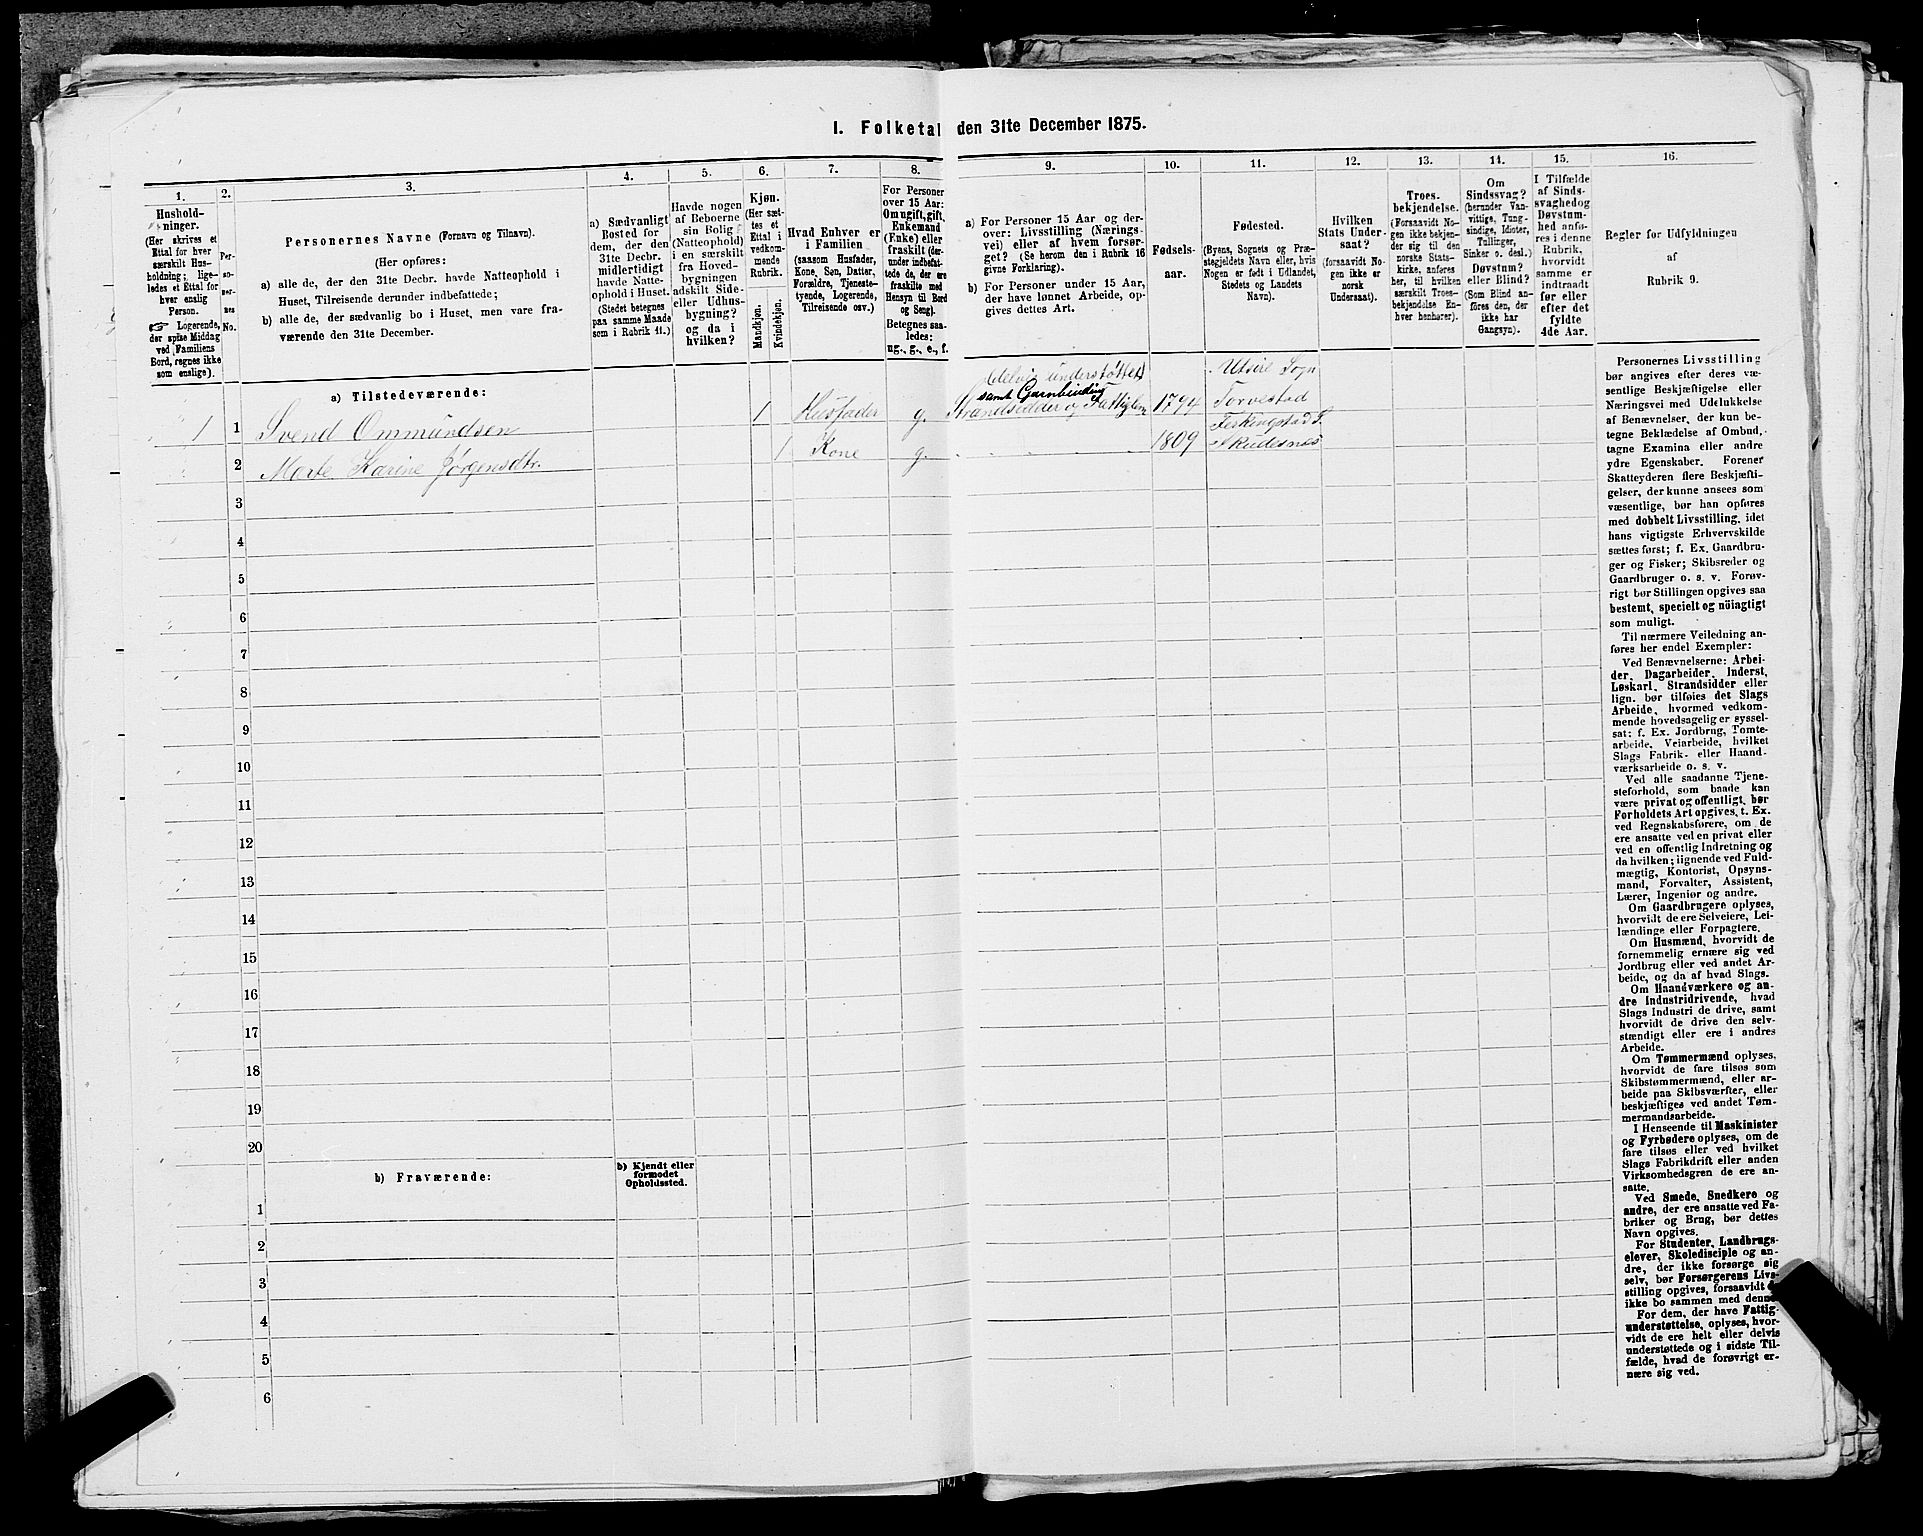 I. Folketal den 31te December 1875.
1.
Hushold-
ninger.
(Her skrives et
Ettal for hver
særskilt Hus-
holdning; lige-
ledes et Ettal for
hver enslig
Person.
☞ Logerende,
der spise Middag
ved Familiens
Bord, regnes ikke
som enslige).
2.
Per-
so-
ner-
nes
No.
3.
Personernes Navne (Fornavn og Tilnavn).
(Her opføres:
a) alle de, der den 31te Decbr. havde Natteophold i
Huset, Tilreisende derunder indbefattede;
b) alle de, der sædvanlig bo i Huset, men vare fra-
værende den 31te December.
4.
a) Sædvanligt
Bosted for
dem, der den
31te Decbr.
midlertidigt
havde Natte-
ophold i Huset.
(Stedet betegnes
paa samme Maade
som i Rubrik 11.)
5.
Havde nogen
af Beboerne
sin Bolig
(Natteophold)
i en særskilt
fra Hoved-
bygningen
adskilt Side-
eller Udhus-
bygning?
og da i
hvilken?
6.
Kjøn.
(Her sæt-
tes et
Ettal i
vedkom-
mende
Rubrik.
Mandkjøn.
Kvindekjøn.
7.
Hvad Enhver er
i Familien
(saasom Husfader,
Kone, Søn, Datter,
Forældre, Tjeneste-
tyende, Logerende,
Tilreisende osv.)
8.
For Personer
over 15 Aar:
Om ugift, gift,
Enkemand
(Enke) eller
fraskilt (der-
under indbefat-
tede de, der ere
fraskilte med
Hensyn til Bord
og Seng).
Betegnes saa-
ledes:
ug., g., e., f.
9.
a) For Personer 15 Aar og der-
over: Livsstilling (Nærings-
vei) eller af hvem forsør-
get? (Se herom den i Rubrik 16
givne Forklaring).
b) For Personer under 15 Aar,
der have lønnet Arbeide, op-
gives dettes Art.
10.
Fødsels-
aar.
11.
Fødested.
(Byens, Sognets og Præ-
stegjeldets Navn eller, hvis
Nogen er født i Udlandet,
Stedets og Landets
Navn).
12.
Hvilken
Stats Under-
saat?
(forsaavidt No-
gen ikke er
norsk
Undersaat).
13.
Troes-
bekjendelse.
(Forsaavidt No-
gen ikke bekjen-
der sig til den
norske Stats-
kirke, anføres
her, til hvilken
særskilt Troes-
bekjendelse En-
hver henhører).
14.
Om
Sindssvag?
(herunder Van-
vittige, Tung-
sindige, Idioter,
Tullinger,
Sinker o. desl.).
Døvstum?
eller Blind?
(Som Blind an-
føres den, der
ikke har
Gangsyn).
15.
I Tilfælde
af Sinds-
svaghed og
Døvstum-
hed anfø-
res i denne
Rubrik,
hvorvidt
samme er
indtraadt
før eller
efter det
fyldte
4de Aar.
16.
Regler for Udfyldningen
af
Rubrik 9.
a) Tilstedeværende:
Delvis understøttet
samt Garnbinding
1 1 Svend Ommundsen 1 Husfader g. Strandsidder og Fattiglem 1794 Utsire Sogn
Torvestad
2 Merte Karine Jørgensdtr. 1 Kone g. 1809 Ferkingstad S.
Skudesnes
3
4
5
6
7
8
9
10
11
12
13
14
15
16
17
18
19
20
b) Fraværende:
b) Kjendt eller
formodet
Opholdssted.
1
2
3
4
5
6
Personernes Livsstilling
bør angives efter deres væ-
sentlige Beskjæftigelse eller
Næringsvei med Udelukkelse
af Benævnelser, der kun be-
tegne Beklædelse af Ombud,
tagne Examina eller andre
ydre Egenskaber. Forener
Skatteyderen flere Beskjæfti-
gelser, der kunne ansees som
væsentlige, bør han opføres
med dobbelt Livsstilling, idet
hans vigtigste Erhvervskilde
sættes først; f. Ex. Gaardbru-
ger og Fisker; Skibsreder og
Gaardbruger o. s. v. Forøv-
rigt bør Stillingen opgives saa
bestemt, specielt og nöiagtigt
som muligt.
Til nærmere Veiledning an-
føres her endel Exempler:
Ved Benævnelserne: Arbei-
der, Dagarbeider, Inderst,
Løskarl, Strandsidder eller
lign. bør tilføies det Slags
Arbeide, hvormed vedkom-
mende hovedsagelig er syssel-
sat; f. Ex. Jordbrug, Tomte-
arbeide, Veiarbeide, hvilket
Slags Fabrik- eller Haand-
værksarbeide o. s. v.
Ved alle saadanne Tjene-
steforhold, som baade kan
være privat og offentligt, bør
Forholdets Art opgives, t. Ex.
ved Regnskabsførere, om de
ere ansatte ved en privat eller
ved en offentlig Indretning og
da hvilken; lignende ved Fuld-
mægtig, Kontorist, Opsyns-
mand, Forvalter, Assistent,
Lærer, Ingeniør og andre.
Om Gaardbrugere oplyses,
hvorvidt de ere Selveiere, Lei-
lændinge eller Forpagtere.
Om Husmænd, hvorvidt de
fornemmelig ernære sig ved
Jordbrug eller ved andet Ar-
beide, og da af hvad Slags.
Om Haandværkere og an-
dre Industridrivende, hvad
Slags Industri de drive, samt
hvorvidt de drive den selv-
stændigt eller ere i andres
Arbeide.
Om Tømmermænd oplyses,
hvorvidt de fare tilsøs som
Skibstømmermænd, eller ar-
beide paa Skibsværfter, eller
beskjæftiges ved andet Tøm-
mermandsarbeide.
I Henseende til Maskinister
og Fyrbødere oplyses, om de
fare tilsøs eller ved hvilket
Slags Fabrikdrift eller anden
Virksomhedsgren de ere an-
satte.
Ved Smede, Snedkere og
andre, der ere ansatte ved Fa-
briker og Brug, bør dettes
Navn opgives.
For Studenter, Landbrugs-
elever, Skoledisciple og an-
dre, der ikke forsørge sig
selv, bør Forsørgerens Livs-
stilling opgives, forsaavidt de
ikke bo sammen med denne.
For dem, der have Fattig-
understøttelse, oplyses, hvor-
vidt de ere helt eller delvis
understøttede og i sidste Til-
fælde, hvad de forøvrigt er-
nære sig ved.